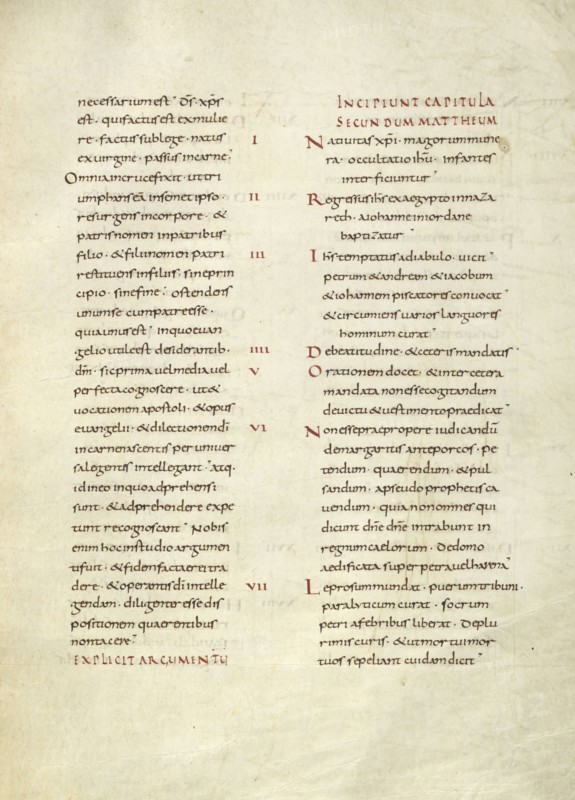 necessarium est· d̅s· xp̅s
est· qui factus est ex mulie
re· factus sub lege· natus
ex uirgine· passus in carne·
Omnia in cruce fixit· ut tri
umphans ea in semet ipso·
resurgens in corpore· &
patris nomen in patribus
filio· & filii nomen patri
restituens in filiis· sine prin
cipio· sine fine· ostendens
unum se cum patre esse·
quia unus est· in quo euan
gelio utile est desiderantib·
dm̅· sic prima uel media uel
perfecta cognoscere· ut &
uocationem apostoli· & opus
euangelii· & dilectionem di̅
in carne nascentis per univer
sa legentes intellegant· atq·
id in eo in quo adprehensi
sunt· & adprehendere expe
tunt recognoscant· Nobis
enim hoc in studio argumen
ti fuit· & fidem factae rei tra
dere· & operantis di̅ intelle
gendam· diligenter esse dis
positionem quaerentibus
non tacere·
EXPLICIT ARGUMENTU̅
INCIPIUNT CAPITULA
SECUNDUM MATTHEUM
I Natiuitas xp̅i· magorum mune
ra· occultatio ihu̅· infantes
interficiuntur·
II Regressus ihs̅ ex aegypto in naza
reth· a iohanne in iordane
baptizatus·
III Ihs̅ temptatus a diabulo· uicit·
petrum & andream & iacobum
& iohannem piscatores conuocat·
& circumiens uarios languores
hominum curat·
IIII De beatitudine· & ceteris mandatis·
V Orationem docet· & inter cetera
mandata non esse cogitandum
de uictu & uestimento praedicat·
VI Non esse praepropere iudicandu̅
de margaritis ante porcos· pe
tendum· quaerendum· & pul
sandum· a pseudo prophetis ca
uendum· quia non omnes qui
dicunt dn̅e dn̅e intrabunt in
regnum caelorum· De domo
aedificata super petra uel harena·
VII Leprosum mundat· puerum tribuni·
paralyticum curat· socrum
petri a febribus liberat· De plu
rimis curis· & ut mortui mor
tuos sepeliant cuidam dicit·